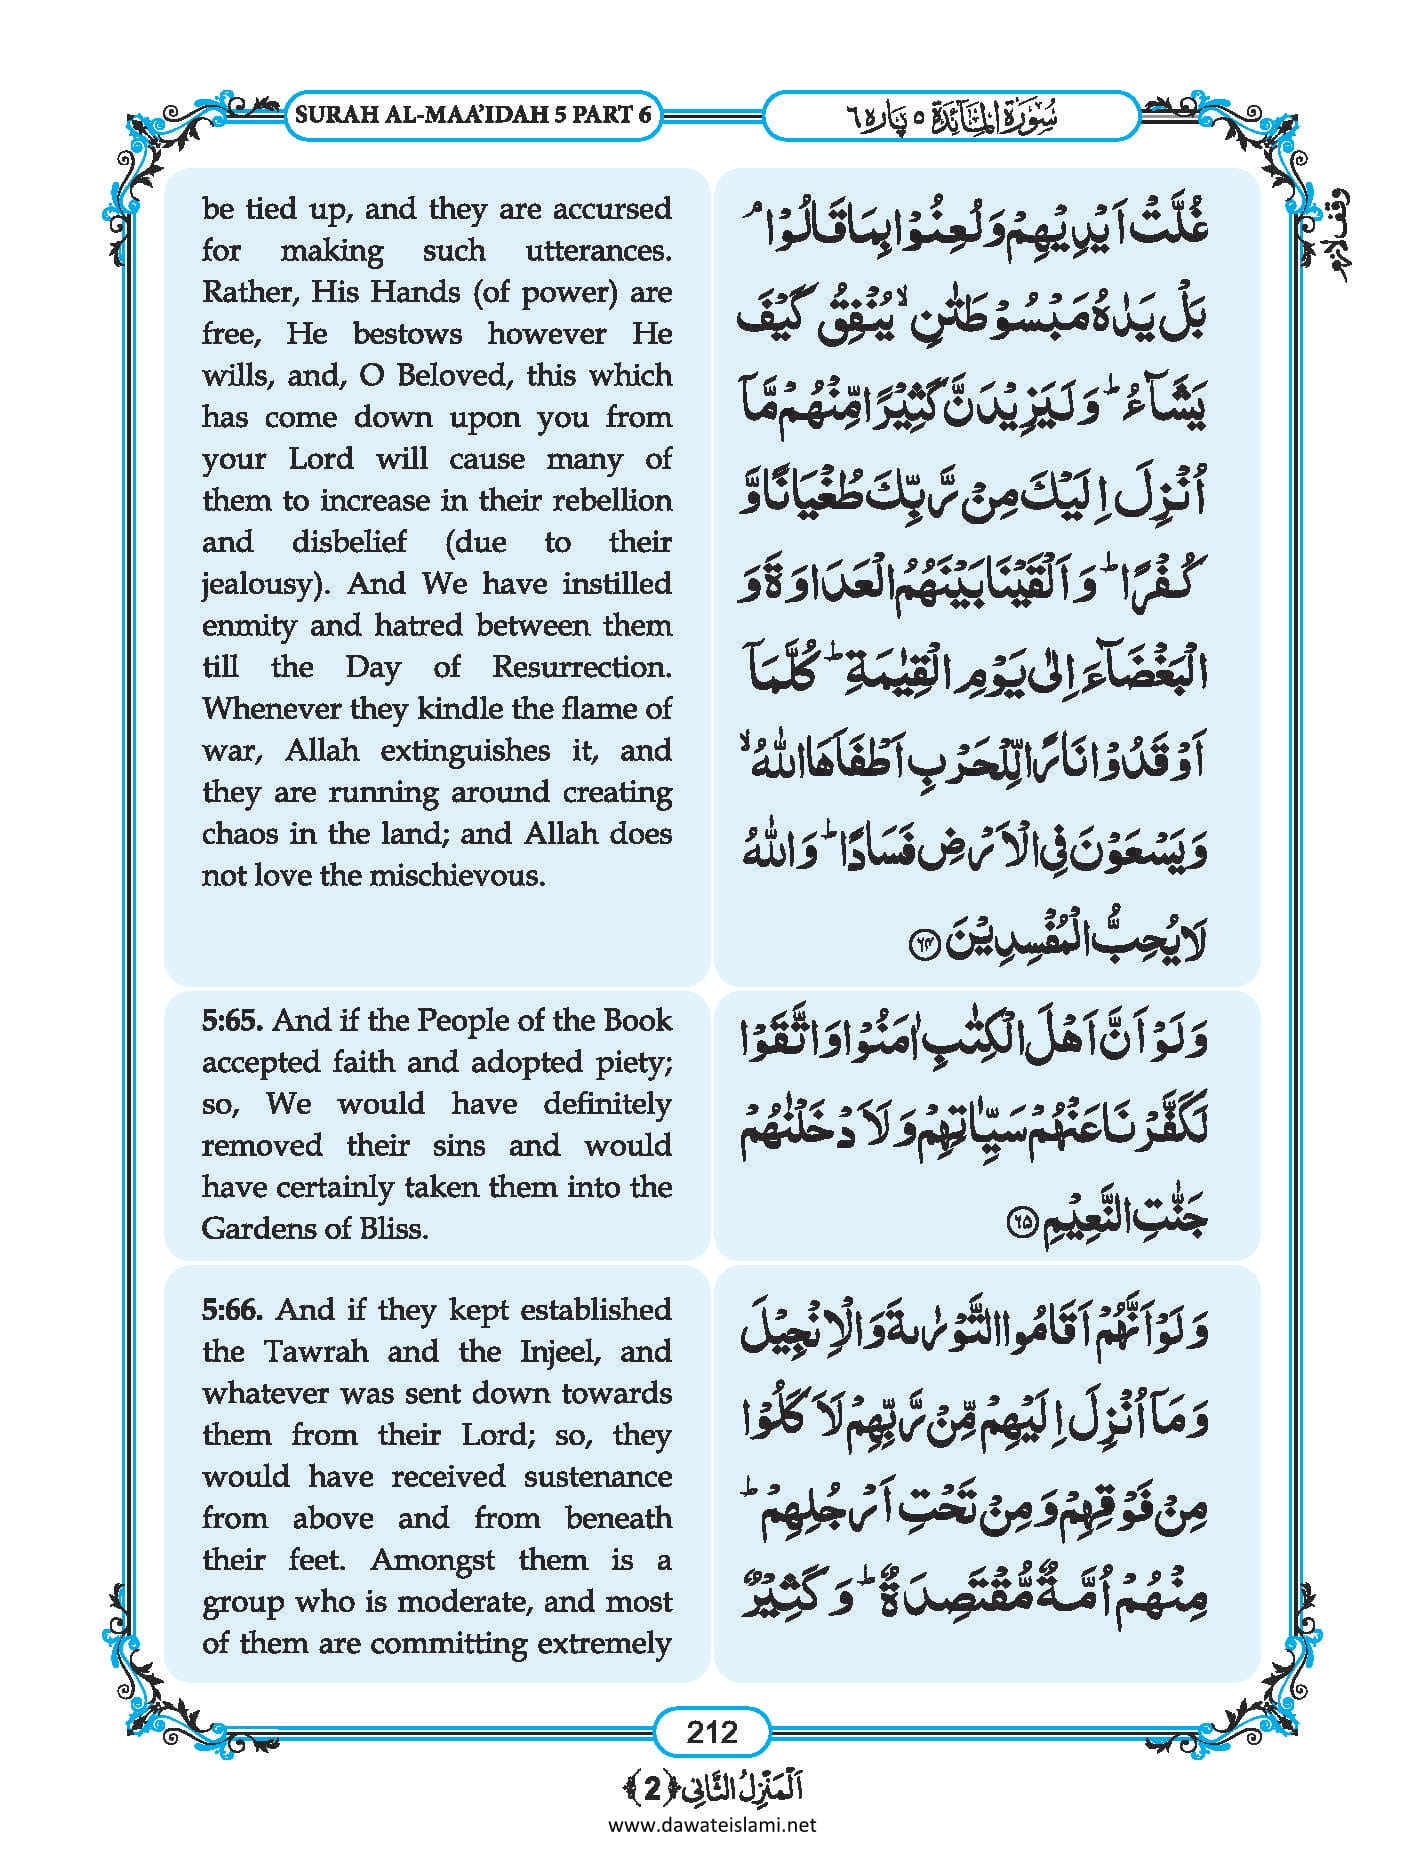 SURAH AL-MAA’IDAH 5 PART 6
سُوْرَةُ الْمَآئِدَة ٥ پاره ٦
وقف لازم
be tied up, and they are accursed
for making such utterances.
Rather, His Hands (of power) are
free, He bestows however He
wills, and, O Beloved, this which
has come down upon you from
your Lord will cause many of
them to increase in their rebellion
and disbelief (due to their
jealousy). And We have instilled
enmity and hatred between them
till the Day of Resurrection.
Whenever they kindle the flame of
war, Allah extinguishes it, and
they are running around creating
chaos in the land; and Allah does
not love the mischievous.
غُلَّتْ اَیْدِیْهِمْ وَ لُعِنُوْا بِمَا قَالُوْاۘ
بَلْ یَدٰهُ مَبْسُوْطَتٰنِۙ یُنْفِقُ كَیْفَ
یَشَآءُؕ وَ لَیَزِیْدَنَّ كَثِیْرًا مِّنْهُمْ مَّاۤ
اُنْزِلَ اِلَیْكَ مِنْ رَّبِّكَ طُغْیَانًا وَّ
كُفْرًاؕ وَ اَلْقَیْنَا بَیْنَهُمُ الْعَدَاوَةَ وَ
الْبَغْضَآءَ اِلٰى یَوْمِ الْقِیٰمَةِؕ كُلَّمَاۤ
اَوْقَدُوْا نَارًا لِّلْحَرْبِ اَطْفَاَهَا اللّٰهُۙ
وَ یَسْعَوْنَ فِی الْاَرْضِ فَسَادًاؕ وَ اللّٰهُ
لَا یُحِبُّ الْمُفْسِدِیْنَ ﴿۶۴﴾
5:65. And if the People of the Book
accepted faith and adopted piety;
so, We would have definitely
removed their sins and would
have certainly taken them into the
Gardens of Bliss.
وَ لَوْ اَنَّ اَهْلَ الْكِتٰبِ اٰمَنُوْا وَ اتَّقَوْا
لَكَفَّرْنَا عَنْهُمْ سَیِّاٰتِهِمْ وَ لَاَدْخَلْنٰهُمْ
جَنّٰتِ النَّعِیْمِ ﴿۶۵﴾
5:66. And if they kept established
the Tawrah and the Injeel, and
whatever was sent down towards
them from their Lord; so, they
would have received sustenance
from above and from beneath
their feet. Amongst them is a
group who is moderate, and most
of them are committing extremely
وَ لَوْ اَنَّهُمْ اَقَامُوا التَّوْرٰىةَ وَ الْاِنْجِیْلَ
وَ مَاۤ اُنْزِلَ اِلَیْهِمْ مِّنْ رَّبِّهِمْ لَاَكَلُوْا
مِنْ فَوْقِهِمْ وَ مِنْ تَحْتِ اَرْجُلِهِمْؕ
مِنْهُمْ اُمَّةٌ مُّقْتَصِدَةٌؕ وَ كَثِیْرٌ
212
اَلْمَنْزِلُ الثَّانِی ﴿2﴾
www.dawateislami.net